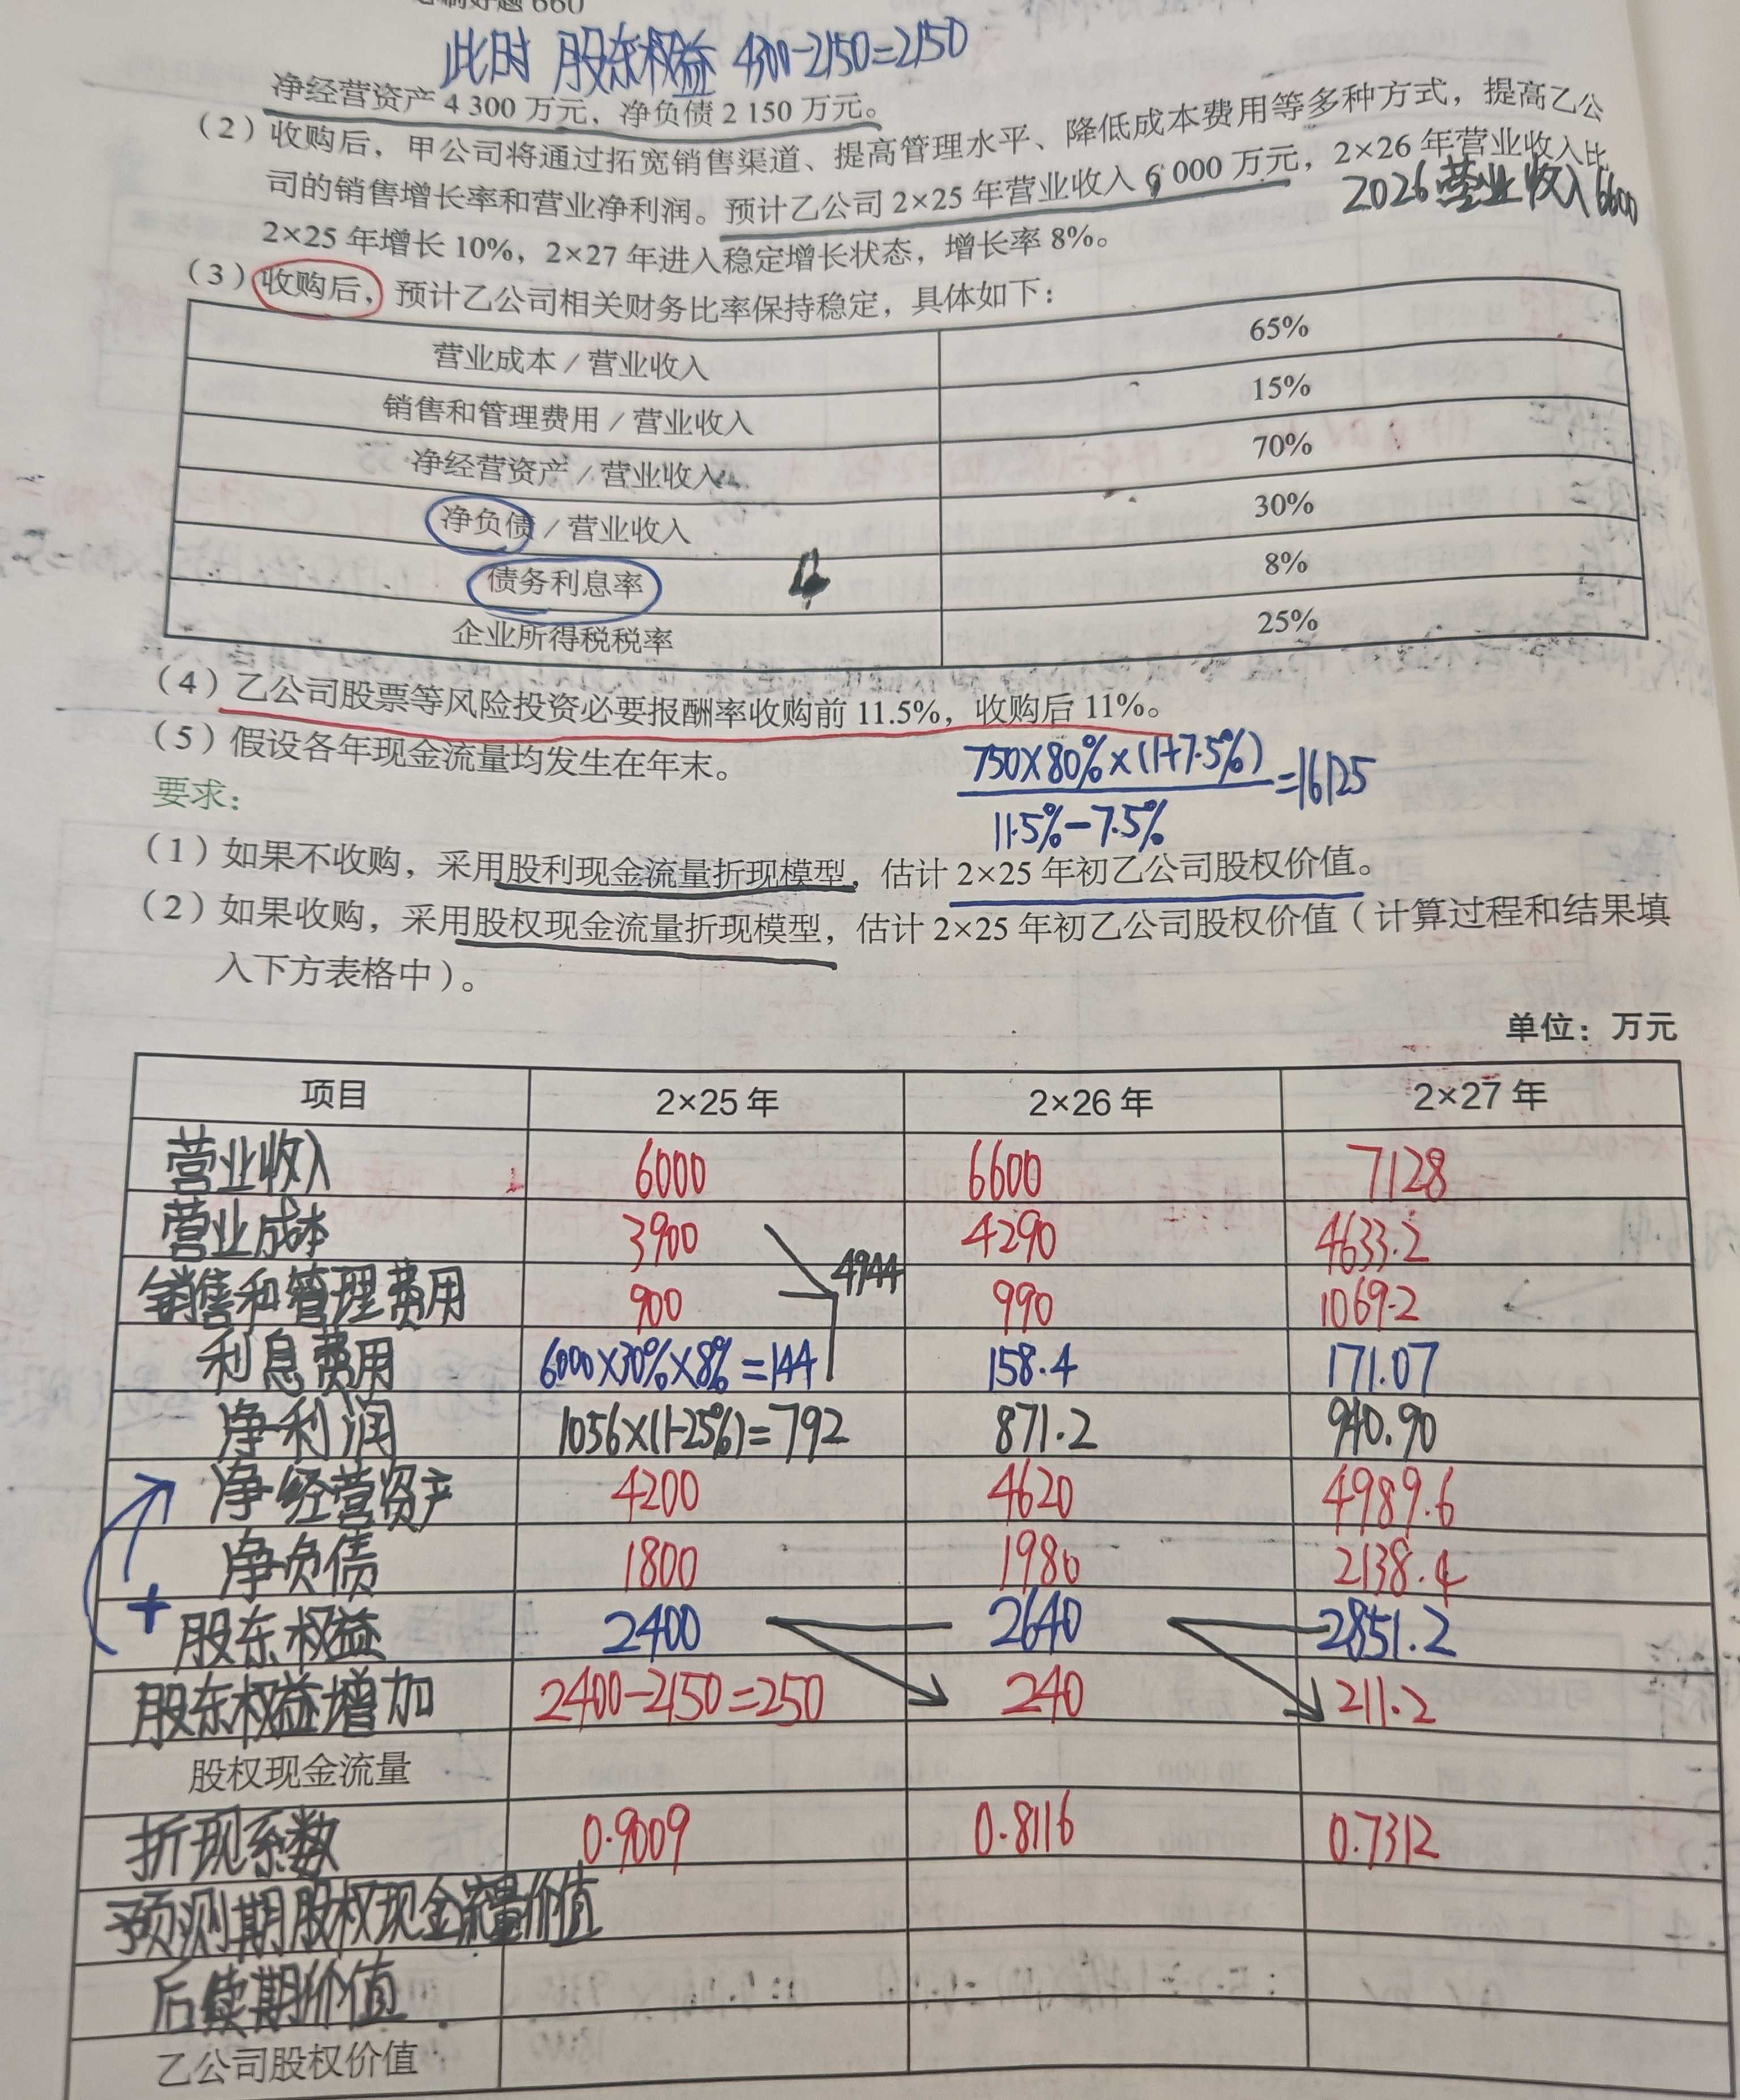 此时 股东权益 4300-2150=2150
净经营资产 4 300 万元，净负债 2 150 万元。
（2）收购后，甲公司将通过拓宽销售渠道、提高管理水平、降低成本费用等多种方式，提高乙公
司的销售增长率和营业净利润。预计乙公司 2×25 年营业收入 6 000 万元，2×26 年营业收入比
2026营业收入6600
2×25 年增长 10%，2×27 年进入稳定增长状态，增长率 8%。
（3）收购后，预计乙公司相关财务比率保持稳定，具体如下：
营业成本 / 营业收入 65%
销售和管理费用 / 营业收入 15%
净经营资产 / 营业收入 70%
净负债 / 营业收入 30%
债务利息率 8%
企业所得税税率 25%
（4）乙公司股票等风险投资必要报酬率收购前 11.5%，收购后 11%。
（5）假设各年现金流量均发生在年末。
750×80%×(1+7.5%)
11.5%-7.5%
=16125
要求：
（1）如果不收购，采用股利现金流量折现模型，估计 2×25 年初乙公司股权价值。
（2）如果收购，采用股权现金流量折现模型，估计 2×25 年初乙公司股权价值（计算过程和结果填
入下方表格中）。
单位：万元
项目 2×25 年 2×26 年 2×27 年
营业收入 6000 6600 7128
营业成本 3900 4290 4633.2
4944
销售和管理费用 900 990 1069.2
利息费用 6000×30%×8%=144 158.4 171.07
净利润 1056×(1-25%)=792 871.2 940.90
净经营资产 4200 4620 4989.6
净负债 1800 1980 2138.4
+ 股东权益 2400 2640 2851.2
股东权益增加 2400-2150=250 240 211.2
股权现金流量
折现系数 0.9009 0.8116 0.7312
预测期股权现金流量价值
后续期价值
乙公司股权价值